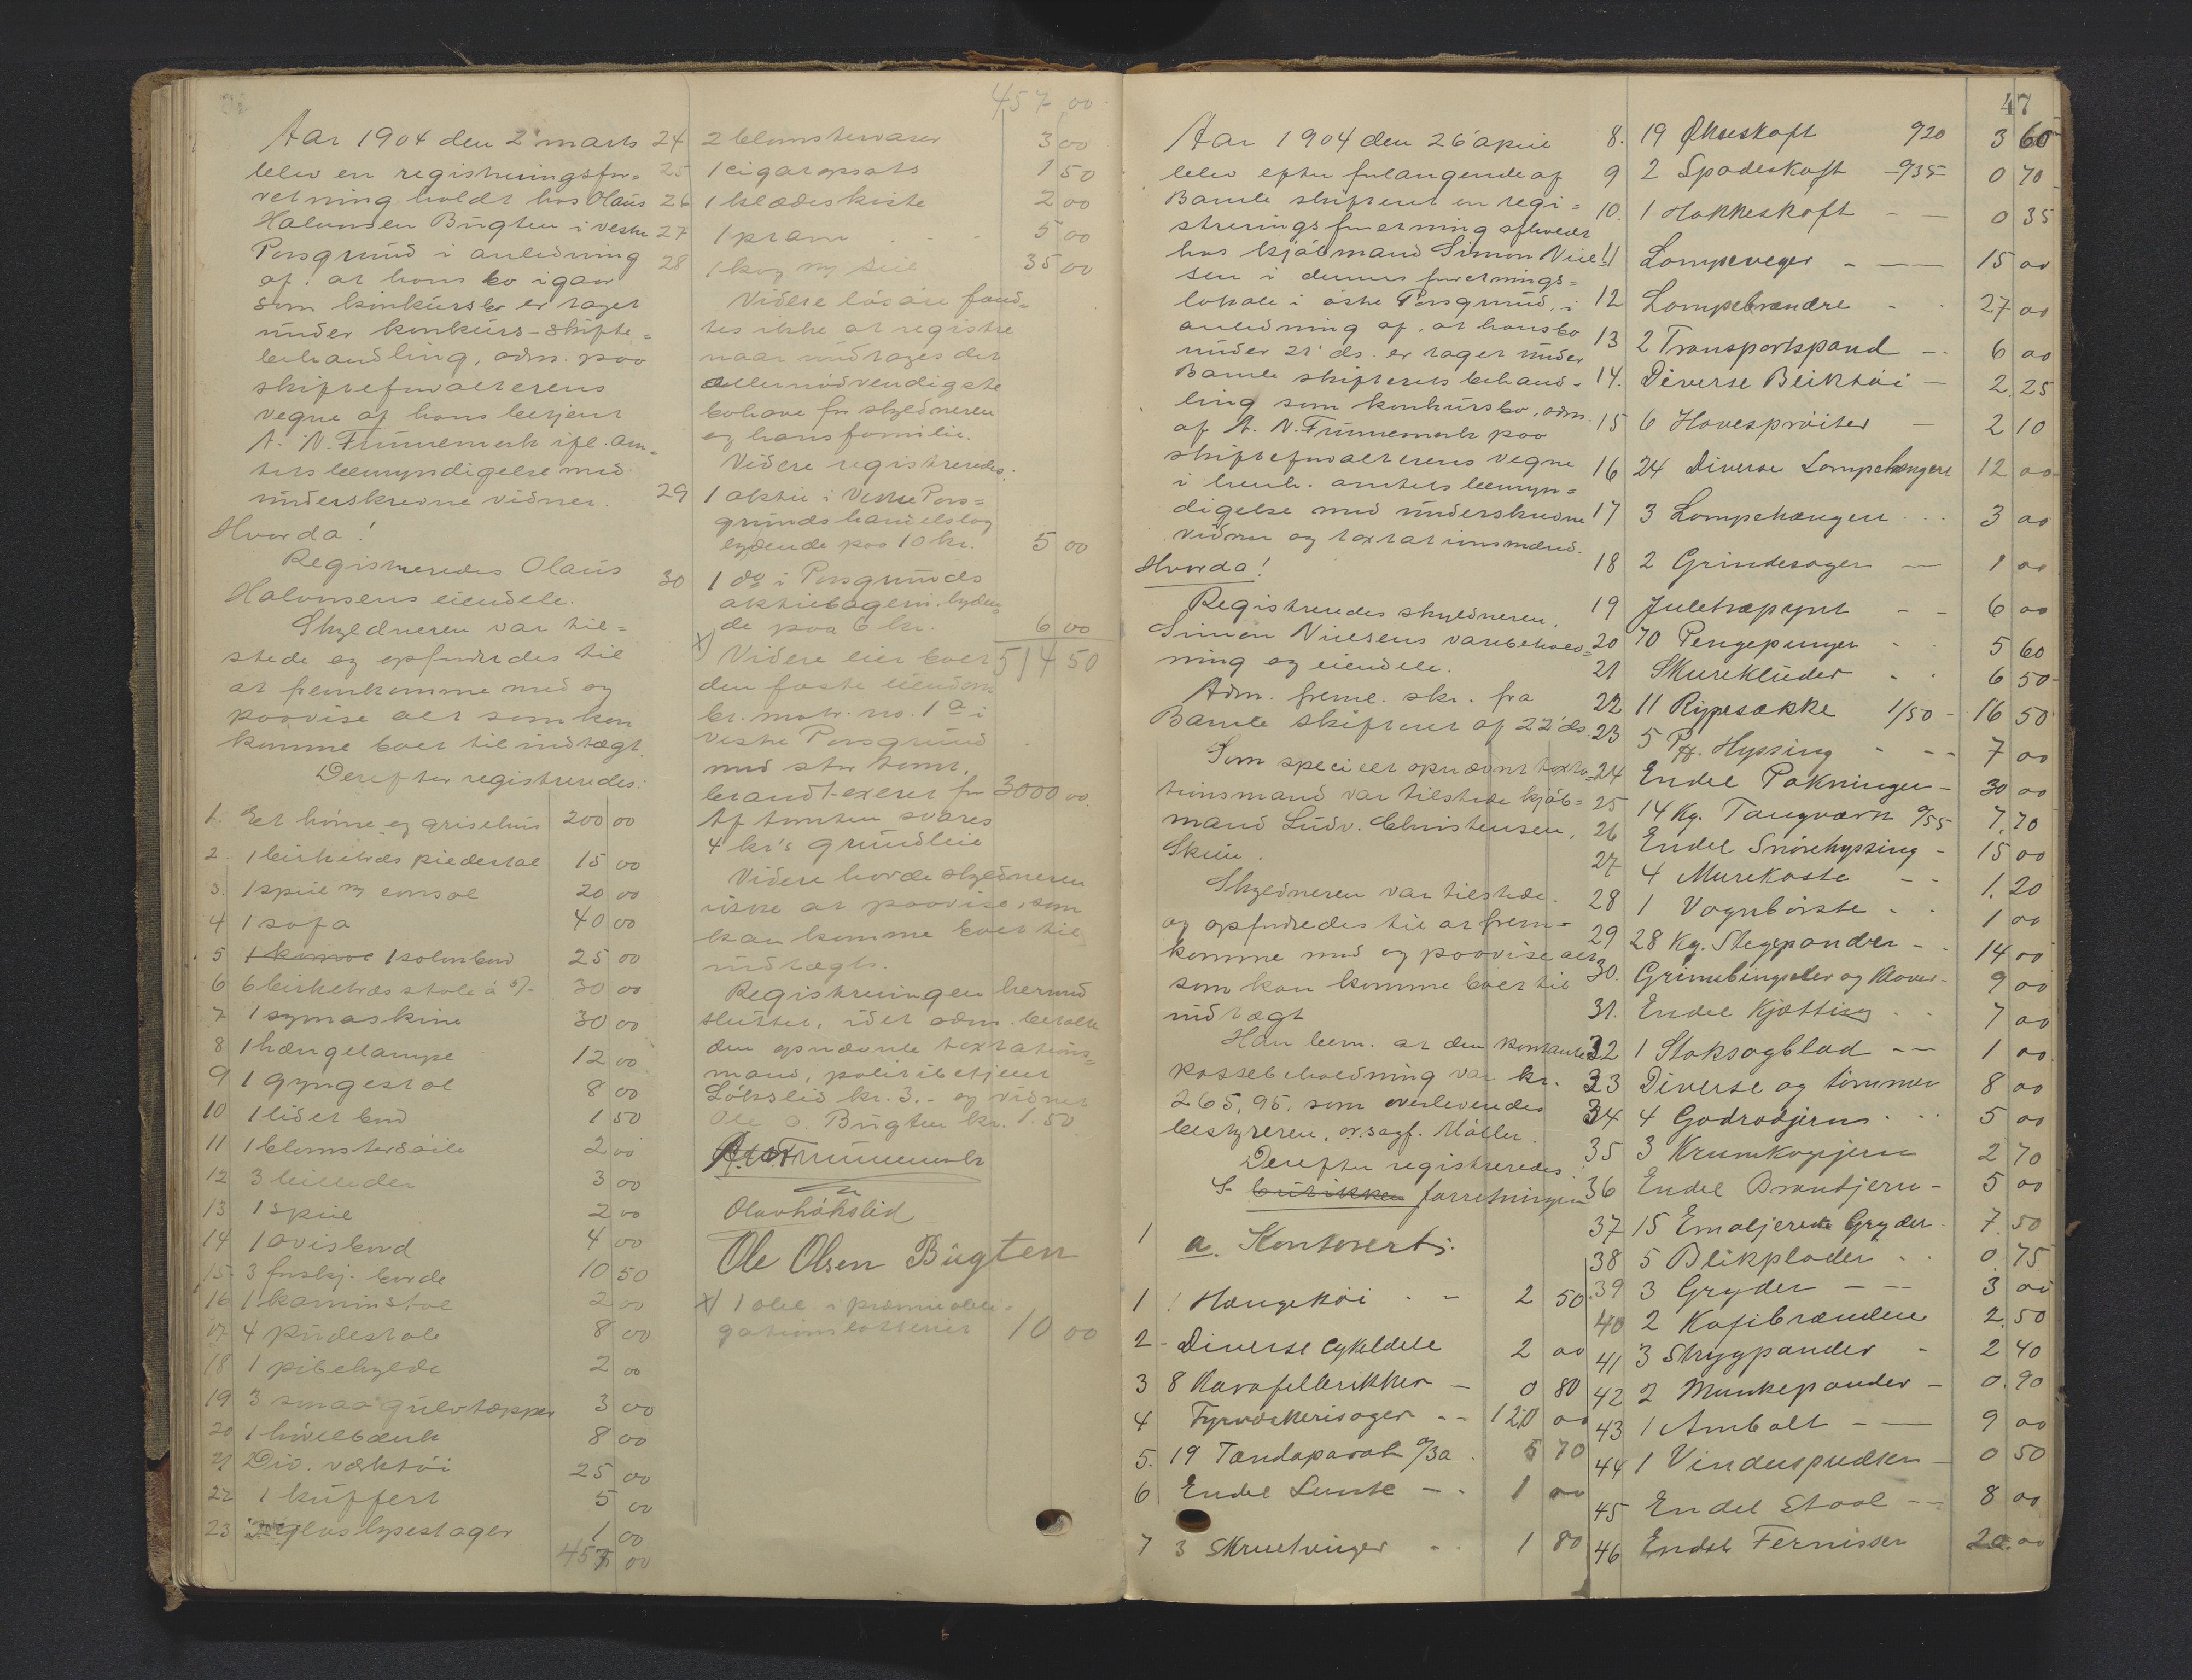 Aar 1904 den 2' marts
blev en registreringsfor=
retning holdt hos Olaus
Halvorsen Bugten i vestre
Porsgrund i anledning
af. at hans bo igaar
som konkursbo er taget
under konkurs-skifte=
behandling, adm. paa
skifteforvalterens
vegne af hans betjent
A. N. Frünnemark ifl. am=
tets bemyndigelse med
underskrevne vidner.
Hvorda!
Registreredes Olaus
Halvorsens eiendele.
Skyldneren var til=
stede og opfordredes til
at fremkomme med og
paavise alt som kan
komme boet til indtægt.
Derefter registreredes:
1. Et hönse og grisehus 200 00
2. 1 birketræs piedestal 15 00
3. 1 speil m/ consol 20 00
4 1 sofa 40 00
5 1 salonbord 25 00
6 6 birketræs stole á 5/- 30 00
7 1 symaskine 30 00
8 1 hængelampe 12 00
9 1 gyngestol 8 00
10 1 lidet bord 1 50
11 1 blomstersöile 2 00
12 3 billeder 3 00
13 1 speil 2 00
14 1 avisbord 4 00
15 3 forskj. borde 10 50
16 1 kaminstol 2 00
17 4 pindestole 8 00
18 1 pibehylde 2 00
19 3 smaa gulvtæpper 3 00
20 1 hövelbænk 8 00
21 Div. værktöi 25 00
22 1 kuffert 5 00
23 2 glas lysestager 1 00
457 00
457 00
24 2 blomstervaser 3 00
25 1 cigaropsats 1 50
26 1 klædeskiste 2 00
27 1 pram 5 00
28 1 kog m/ seil 35 00
Videre lösöre fand=
tes ikke at registre
naar undtages det
allernödvendigste
bohave for skyldneren
og hans familie.
Videre registreredes:
29 1 aktie i Vestre Pors=
grunds handelslag
lydende paa 10 kr. 5 00
30 1 do i Porsgrunds
aktiebageri lyden=
de paa 6 kr. 6 00
x) Videre eier boet 514 50
den faste eiendom
br. matr. no. 1 a i
Vestre Porsgrund
med stor tomt,
brandt-exeret for 3000 00
Af tomten svares
4 kr's grundleie
Videre havde skyldneren
ikke at paavise, som
kan komme boet til
indtægt.
Registreringen hermed
sluttet, idet adm. betalte
den opnævnte taxtations=
mand, politibetjent
Löbslid kr. 3.- og vidnet
Ole O. Bugten kr. 1.50
A. N. Frünnemark
Olav Løkslid
Ole Olsen Bügten
x) 1 obl. i præmieobli=
gationslotteriet 10 00
47
Aar 1904 den 26' april
blev efter forlangende af
Bamle skifteret en regi=
streringsforretning afholdt
hos kjöbmand Simon Niel=
sen i dennes forretnings=
lokale i östre Porsgrund, i
anledning af, at hans bo
under 21' ds. er taget under
Bamle skifterets behand=
ling som konkursbo, adm.
af A. N. Frünnemark paa
skifteforvalterens vegne
i henh. amtets bemyn=
digelse med underskrevne
vidner og taxtationsmænd.
Hvorda!
Registreredes skyldneren,
Simon Nielsens varebehold=
ning og eiendele.
Adm. freml. skr. fra
Bamle skifteret af 22' ds.
Som specielt opnævnt taxta=
tionsmand var tilstede kjöb=
mand Ludv. Christensen,
Skien.
Skyldneren var tilstede
og opfordredes til at frem=
komme med og paavise alt
som kan komme boet til
indtægt
Han bem. at den kontante
kassebeholdning var kr.
265,95, som overleveredes
bestyreren, or.sagf. Möller.
Derefter registreredes
I butikken forretningen
1 a. Kontoret:
1 1 Hængeköi 2 50
2 Diverse Cykeldele 2 00
3 8 Karafelbrikker 0 80
4 Fyrværkerisager 120 00
5. 19 Tændaparat 0/30 5 70
6 Endel Lunte 1 00
7 3 Skruetvinger 1 80
8. 19 Økseskaft 0/20 3 60
9 2 Spadeskaft 0/35 0 70
10. 1 Hakkeskaft 0 35
11 Lampeveger 15 00
12 Lampebrændre 27 00
13 2 Transportspand 6 00
14. Diverse Bliktöi 2.25
15 6 Havesprøiter 2 10
16 24 Diverse Lampehængere 12 00
17 3 Lampehængere 3 00
18 2 Grindesager 1 00
19 Juletræpynt 6 00
20 70 Pengepunger 5 60
21 Skureklüder 6 50
22 11 Rypesække 1/50 16 50
23 5 Pk. Hyssing 7 00
24 Endel Pakninger 30 00
25 14 Kg. Taugværk 0/55 7.70
26 Endel Snørehyssing 15 00
27 4 Murekoste 1.20
28 1 Vognbørste 1 00
29 28 Kg. Stegepander 14 00
30. Grimebingsler og Klover 9 00
31. Endel Kjætting 7 00
32 1 Stoksagblad 1 00
33 Diverse og tømmer 8 00
34 4 Godrodjern 5 00
35 3 Krumkagejern 2 70
36 Endel Baandjern 5 00
37 15 Emaljerede Gryder 7.50
38 5 Blikplader 0.75
39 3 Gryder 3 00
40 2 Kafibrændere 2.50
41 3 Strygpander 2 40
42 2 Munkepander 0.90
43 1 Ambolt 9 00
44 1 Vinduspudser 0 50
45 Endel Staal 8 00
46 Endel Fernisser 20.00